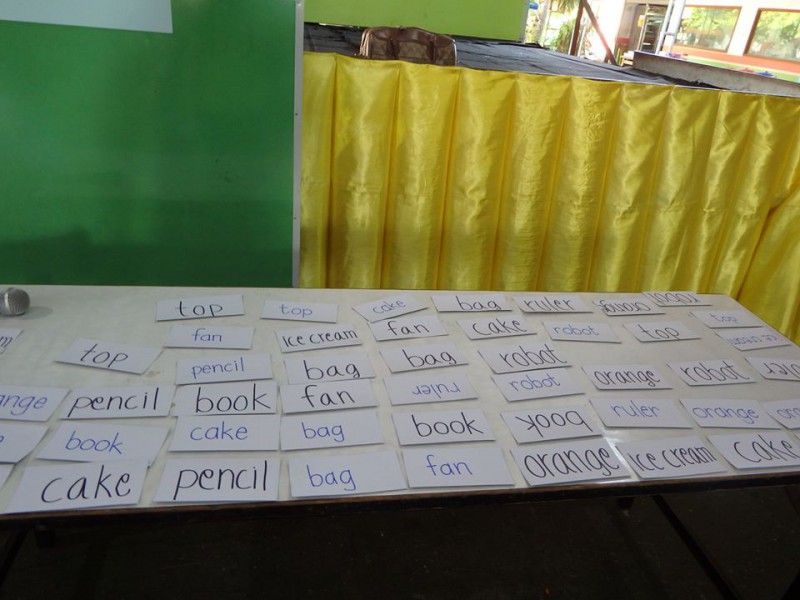 top top cake bag ruler orange robot
fan ice cream fan cake robot top top
top pencil bag bag robot orange robot ice cream
ange pencil book fan ruler robot ruler
book cake bag book book ruler orange
cake pencil bag fan orange ice cream cake